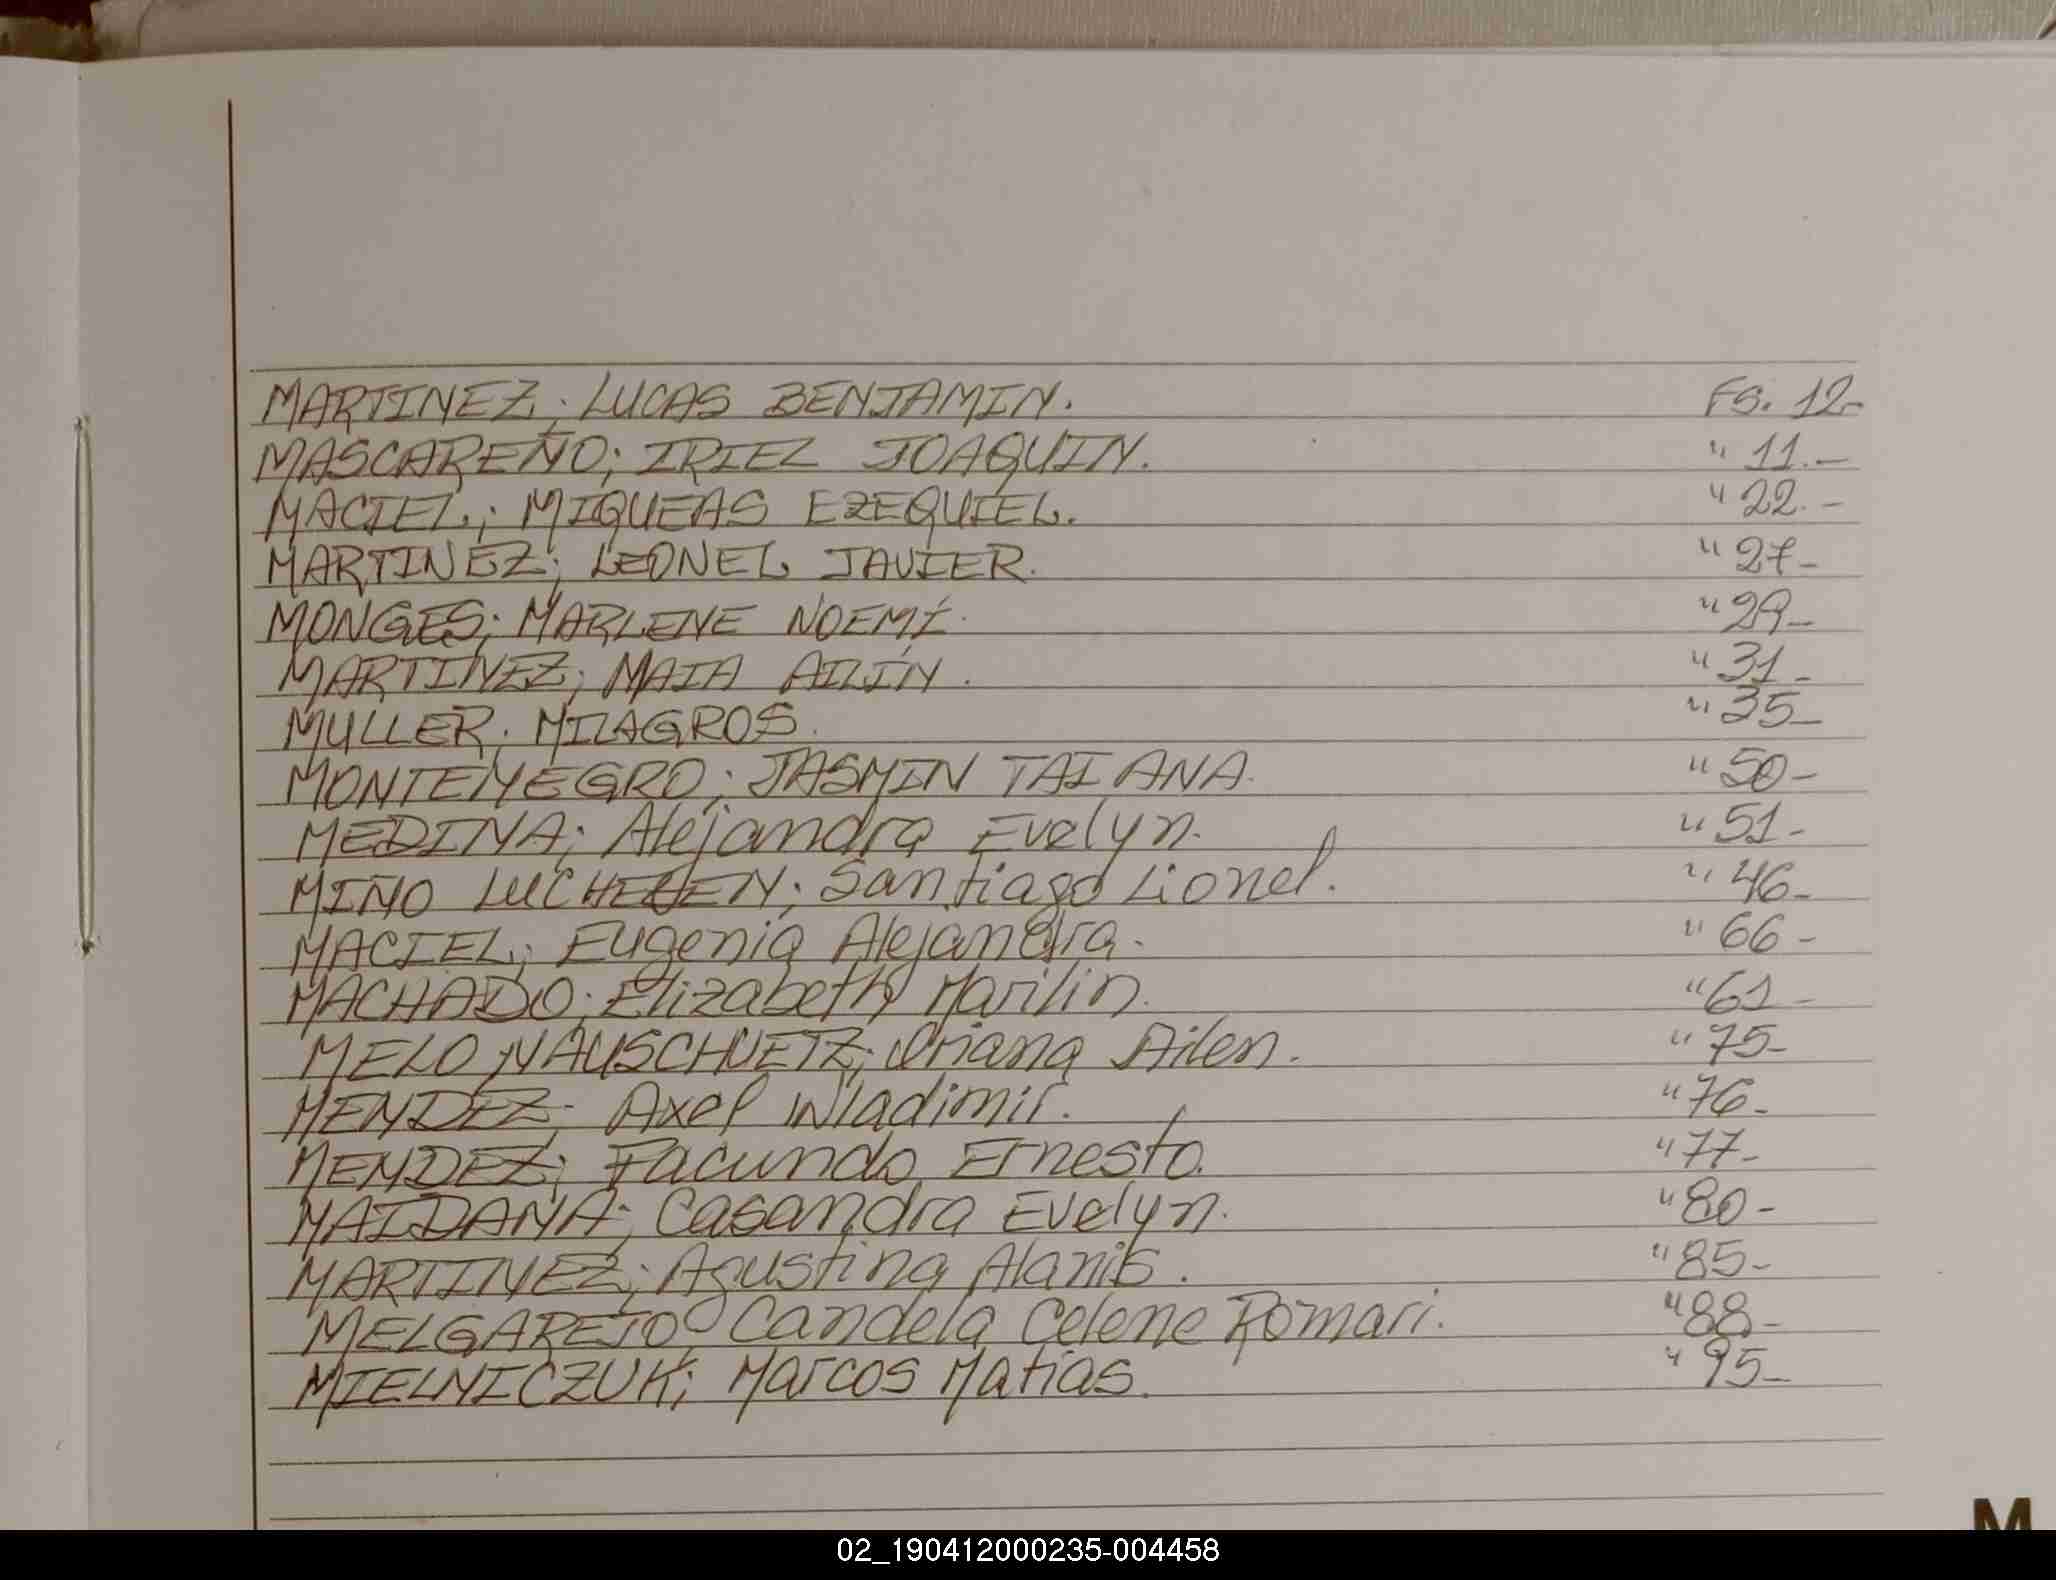 MARTINEZ; LUCAS BENJAMIN. Fs. 12-
MASCAREÑO; IRIEL JOAQUIN. " 11.-
MACIEL; MIQUEAS EZEQUIEL. " 22.-
MARTINEZ; LEONEL JAVIER. " 27-
MONGES; MARLENE NOEMÍ. " 29-
MARTINEZ; MAIA AILÍN. " 31-
MULLER; MILAGROS. " 35-
MONTENEGRO; JASMIN TAIANA. " 50-
MEDINA; Alejandra Evelyn. " 51-
MIÑO; Santiago Lionel. " 46-
MACIEL; Eugenia Alejandra. " 66-
MACHADO; Elizabeth Marilin. " 61-
MELO NAUSCHUETZ; Oriana Ailen. " 75-
MENDEZ; Axel Wladimir. " 76-
MENDEZ; Facundo Ernesto. " 77-
MAIDANA; Casandra Evelyn. " 80-
MARTINEZ; Agustina Alanis. " 85-
MELGAREJO Candela Celene Romari. " 88-
MIELNICZUK; Marcos Matias. " 95-
M
02_190412000235-004458